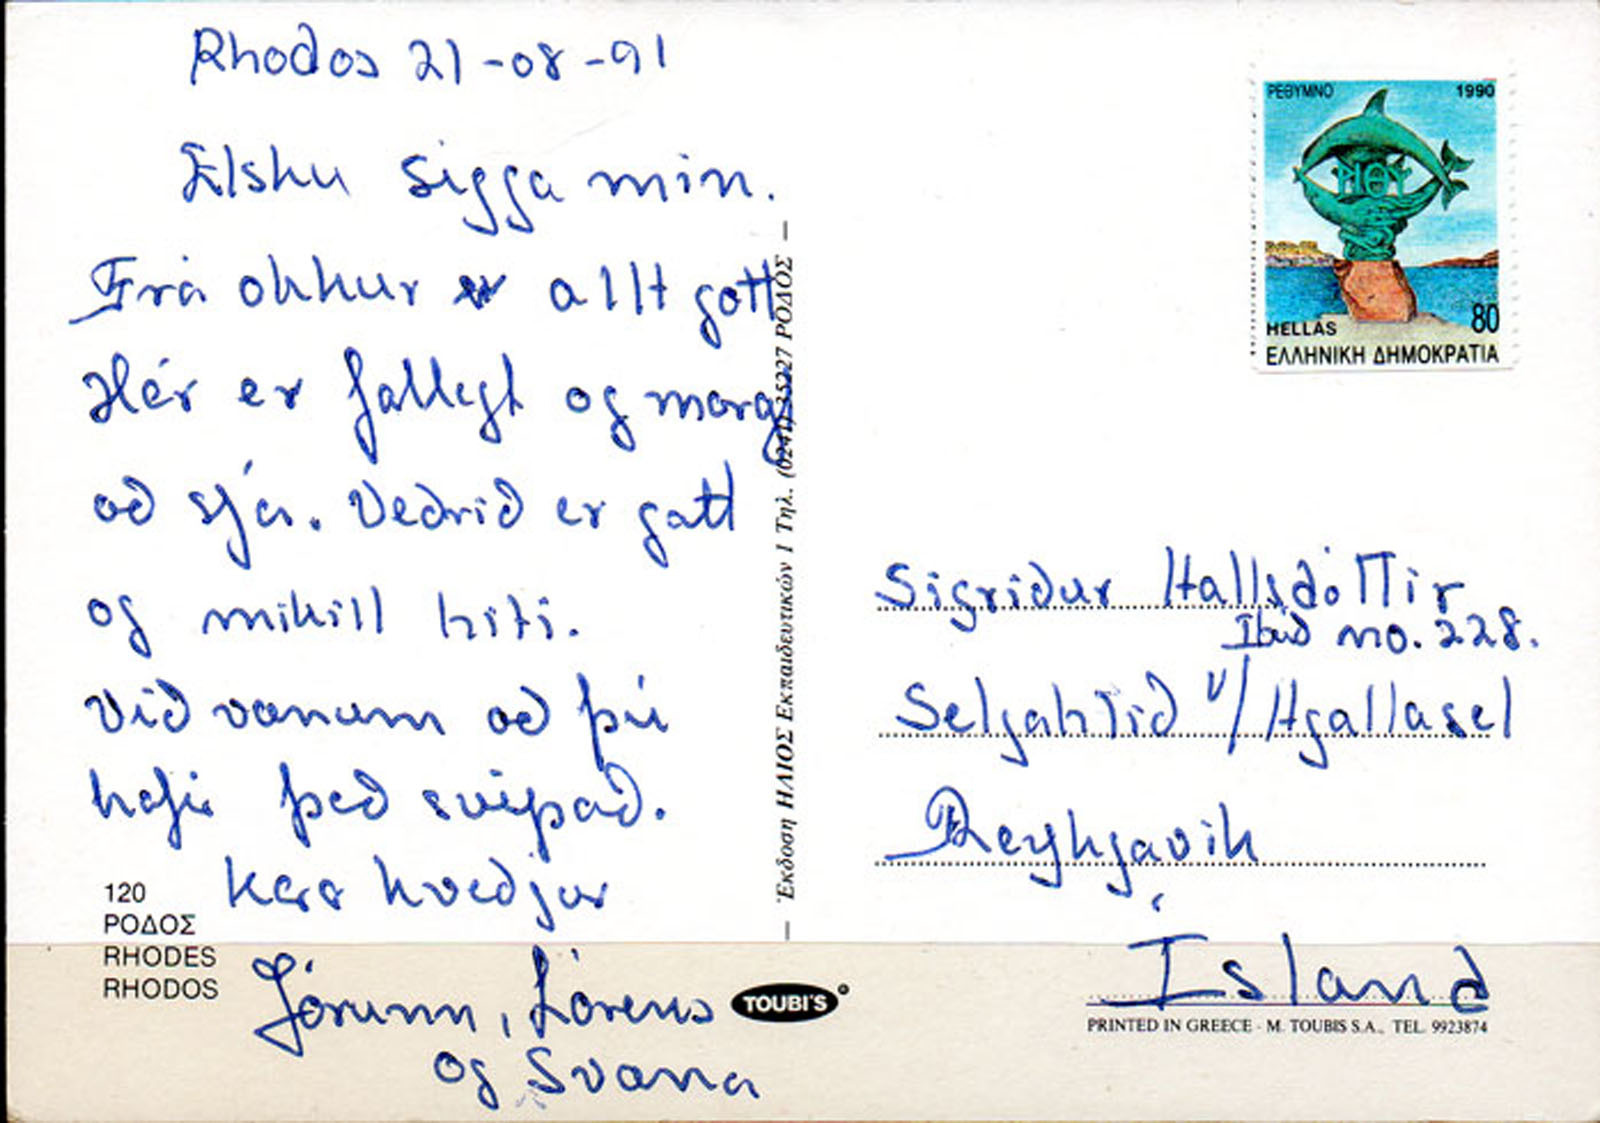 Rhodos 21-08-91
Elsku Sigga mín.
Frá okkur er allt gott
Hér er fallegt og margt
að sjá. Veðrið er gott
og mikill hiti.
Við vonum að þú
hafir það svipað.
Kær kveðjur
Jórunn, Lórens
og Svana
120
ΡΟΔΟΣ
RHODES
RHODOS
TOUBI'S
Έκδοση ΗΛΙΟΣ Εκπαιδευτικών 1 Τηλ. (0241) 35227 ΡΟΔΟΣ
ΡΕΘΥΜΝΟ 1990
ΡΙΘΥ
HELLAS 80
ΕΛΛΗΝΙΚΗ ΔΗΜΟΚΡΑΤΙΑ
Sigríður Hallsdóttir
Íbúð no. 228.
Seljahlíð v/Hjallasel
Reykjavík
Ísland
PRINTED IN GREECE - M. TOUBIS S.A., TEL. 9923874